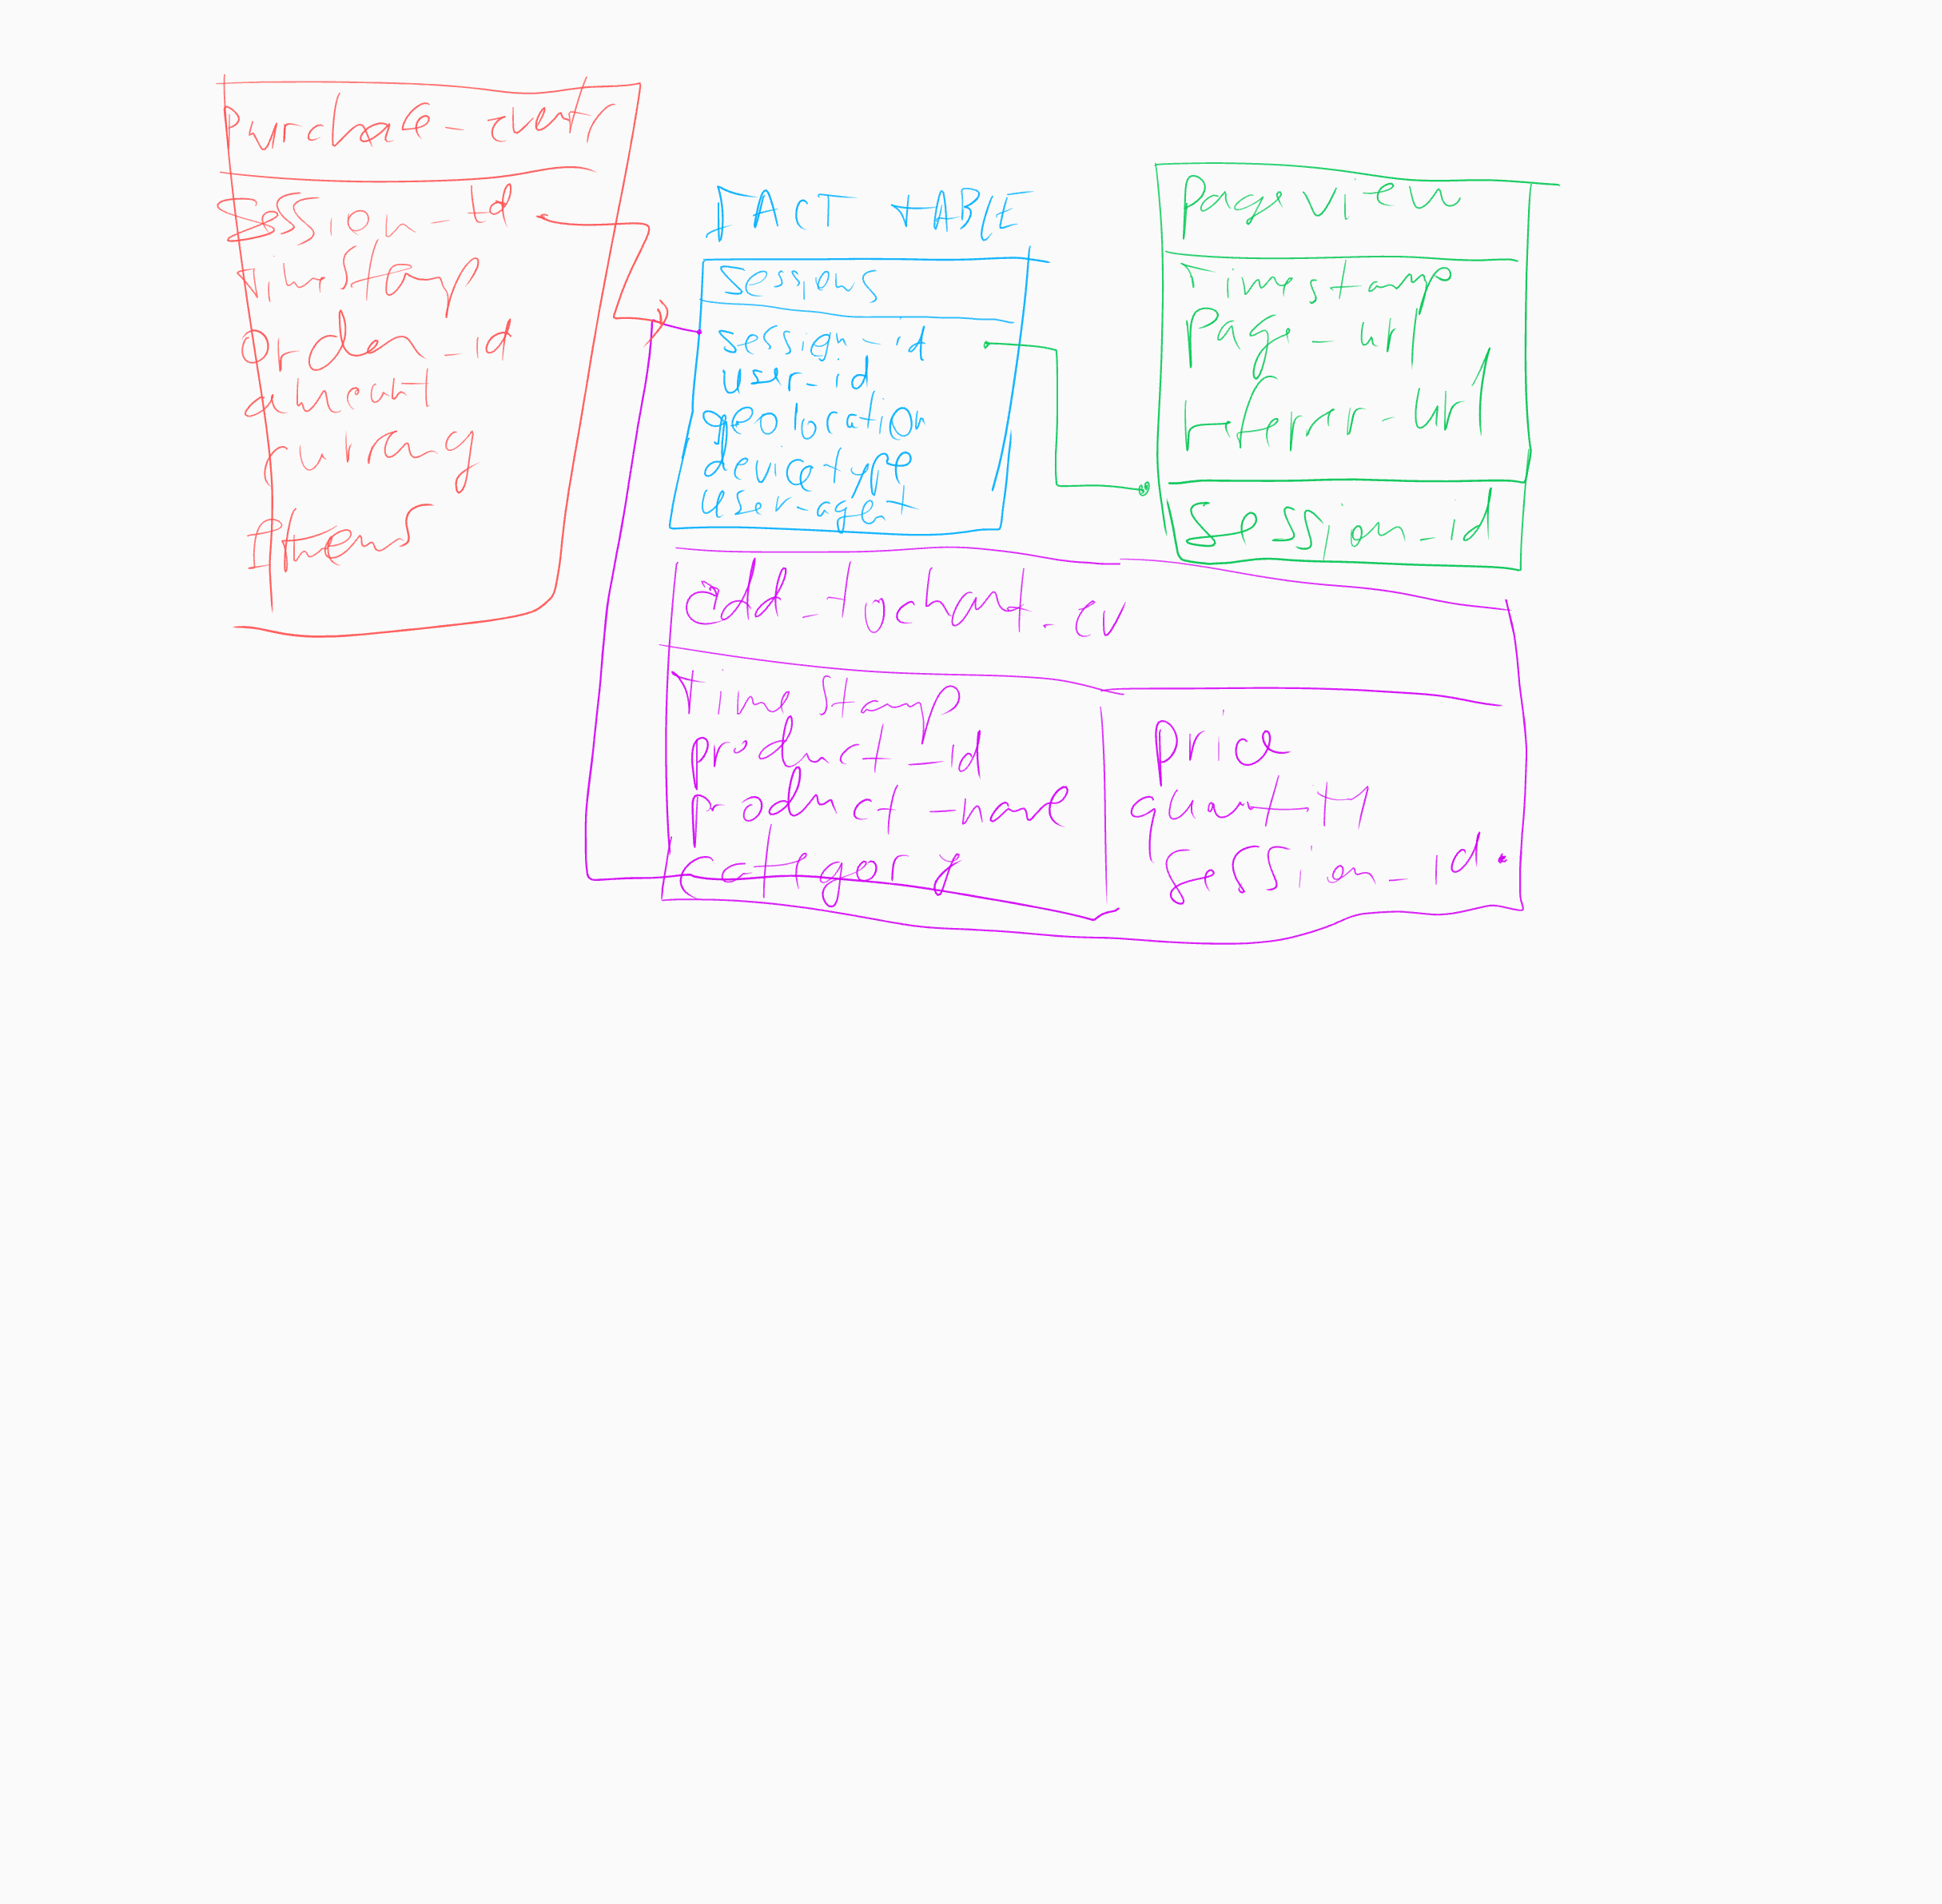 Purchase_events
Session_id
Timestamp
Order_id
amount
currency
Items
FACT TABLE
Sessions
session_id
user_id
geolocation
device type
user_agent
Page view
Timestamp
Page_url
referrer_url
Session_id
add_tocart_ev
Timestamp
product_id
product_name
category
price
quantity
session_id